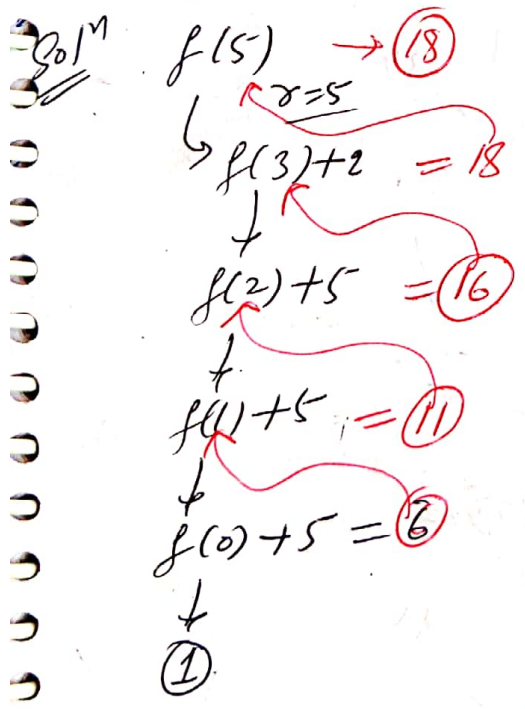 Solⁿ f(5) → 18
r=5
f(3)+2 = 18
f(2)+5 = 16
f(1)+5 = 11
f(0)+5 = 6
1